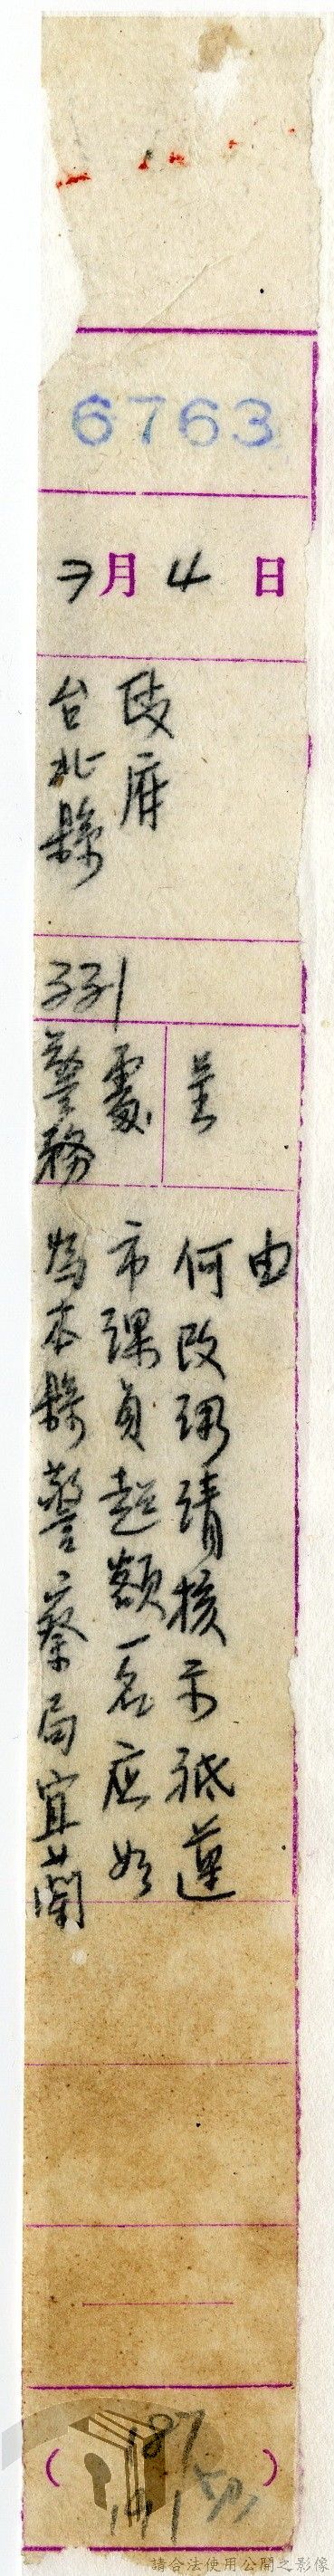 6763
7月4日
台北縣
政府
警務
處
呈
為本縣警察局宜蘭
市課員超額一名應如
何改請核示祇遵
由
(187)
191
請合法使用公開之影像